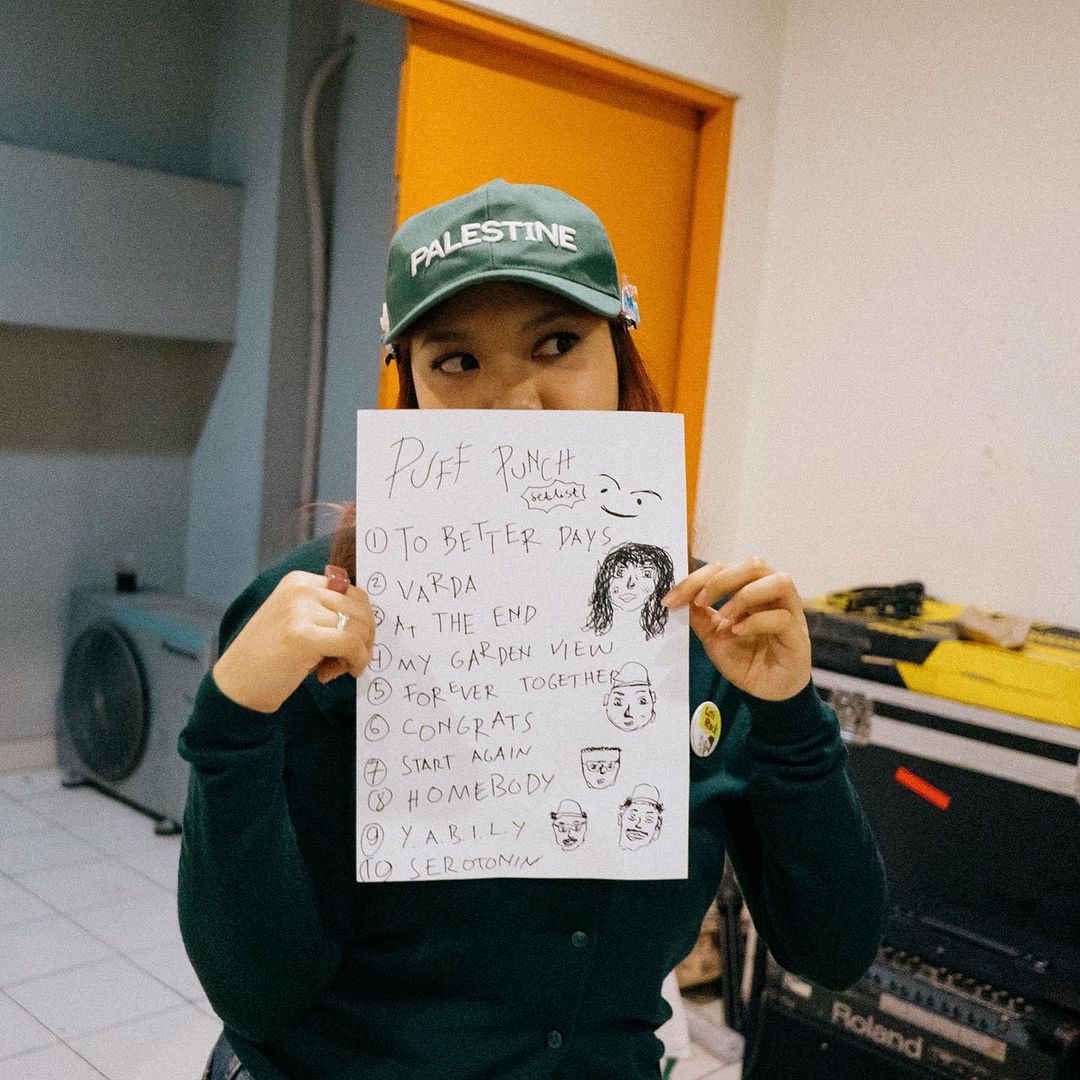 PALESTINE
PUFF PUNCH
setlist
① TO BETTER DAYS
② VARDA
③ At THE END
④ MY GARDEN VIEW
⑤ FOREVER TOGETHER
⑥ CONGRATS
⑦ START AGAIN
⑧ HOMEBODY
⑨ Y.A.B.I.L.Y
⑩ SEROTONIN
Roland